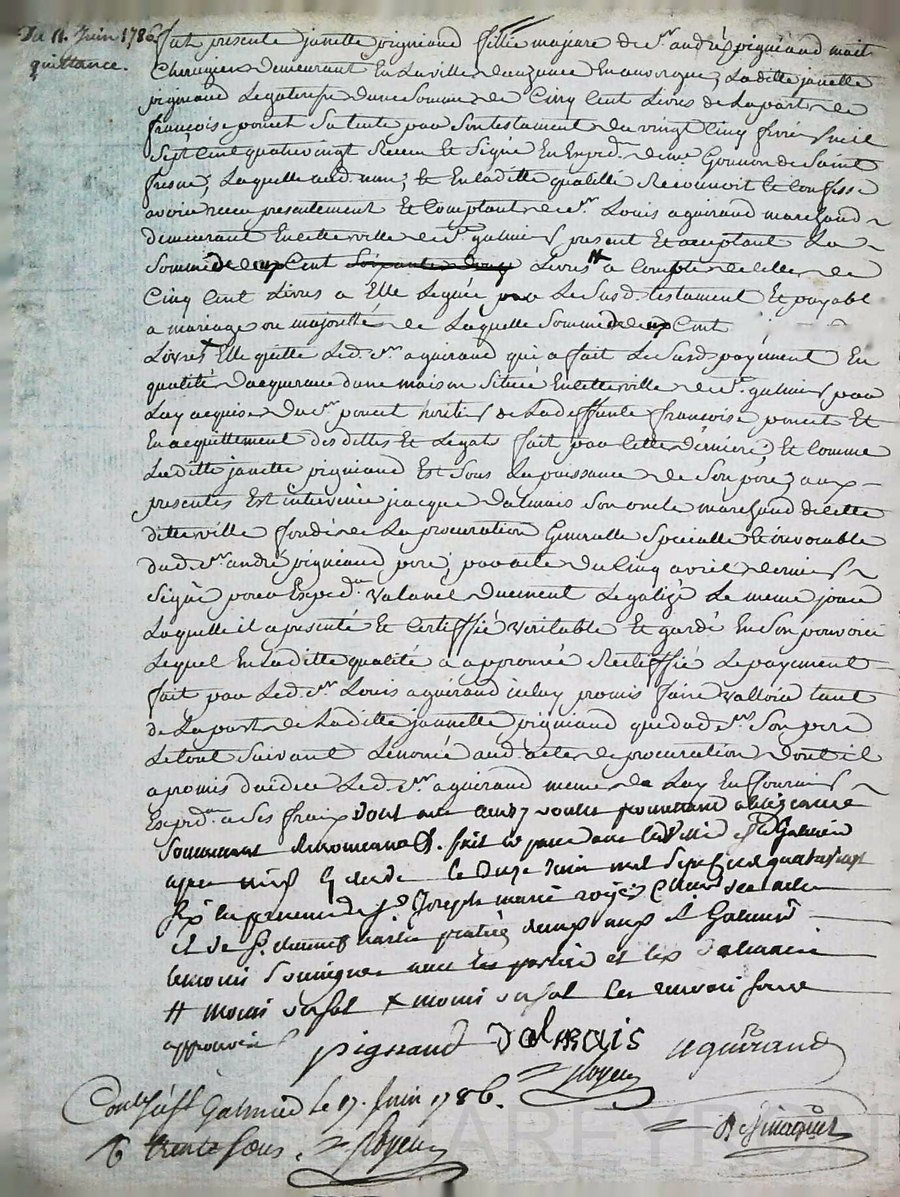 Du 11. Juin 1786
quittance.
fut presente janette pigniaud fillie majeure de Sr. andré pigniaud mait
Chirugien demeurant En la ville En auvergne; Laditte janette
pigniaud Legataire d'une Somme de Cinq Cent Livres de La part de
françoise poncet Sa tente par Son testament du vingt Cinq mil
Sept Cent quatre vingt Receu Et Signé En Exped. de me Gonnon de Saint
Laquelle aud. nom; Et En laditte qualitté Reconnoit Et Confesse
avoir receu presentement Et Comptant de Sr. Louis aguiraud marchand
demeurant En cette ville de St. galmier present Et acceptant La
Somme de Cent Livres # a Compte de Celle de
Cinq Cent Livres a Elle Leguée par Le Susd. testament Et payable
a mariage ou majoritté de Laquelle Somme de Cent
Livres x Elle quitte Led. Sr. aguiraud qui a fait Le Susd. payement En
qualité d'acquereur d'une maison Située En cette ville de St. galmier par
Luy acquise du Sr. poncet heritier de La deffunte françoise poncet Et
En acquittement des dettes Et Legats fait par Cette derniere; Et Comme
Laditte janette pigniaud Est Sous La puissance de Son pere; aux
presentes Est intervenüe jacque dalmais Son oncle marchand de cette
ditte ville fondé de La procuration Generalle Specialle Et irrevocable
dud. Sr. andré pigniaud pere, par acte du Cinq avril dernier
Signé par Exped. duement Legalizé Le meme jour
Laquelle il a presenté Et Certiffié veritable Et gardé En Son pouvoir
Lequel En Laditte qualité a approuvé Ratiffié Le payement
fait par Led. Sr. Louis aguiraud iceluy promis faire valloir tant
de La part de Laditte jannette pigniaud que dud. Sr. Son pere
Le tout Suivant Lenoncé aud. acte de procuration dont il
a promis d'aider Led. Sr. aguiraud meme de Luy En fournir
Exped. a Ses frais Dont acte
Soumettant Renonceant. fait Et passé dans la ville de St. Galmier
apres midy Le Onze Juin mil Sept Cent quatre vingt
Six En presence de Sr. Joseph marie
et de Sr. St Galmier
temoins Soussignes avec les parties et led. dalmais
# moins x moins Les renvoi
approuvés
pignaud dalmais aguiraud
Royer
Conlé à St Galmier le 17. Juin 1786.
R trente sous. Royer